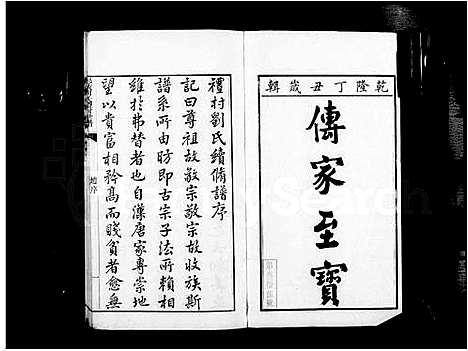 乾隆丁丑歲輯
傳家至寶
禮村劉氏續脩譜序
記曰尊祖故敬宗敬宗故收族斯
譜系所由昉即古宗子法所賴相
維於弗替者也自漢唐家專崇地
望以貴富相矜高而賤貧者愈無